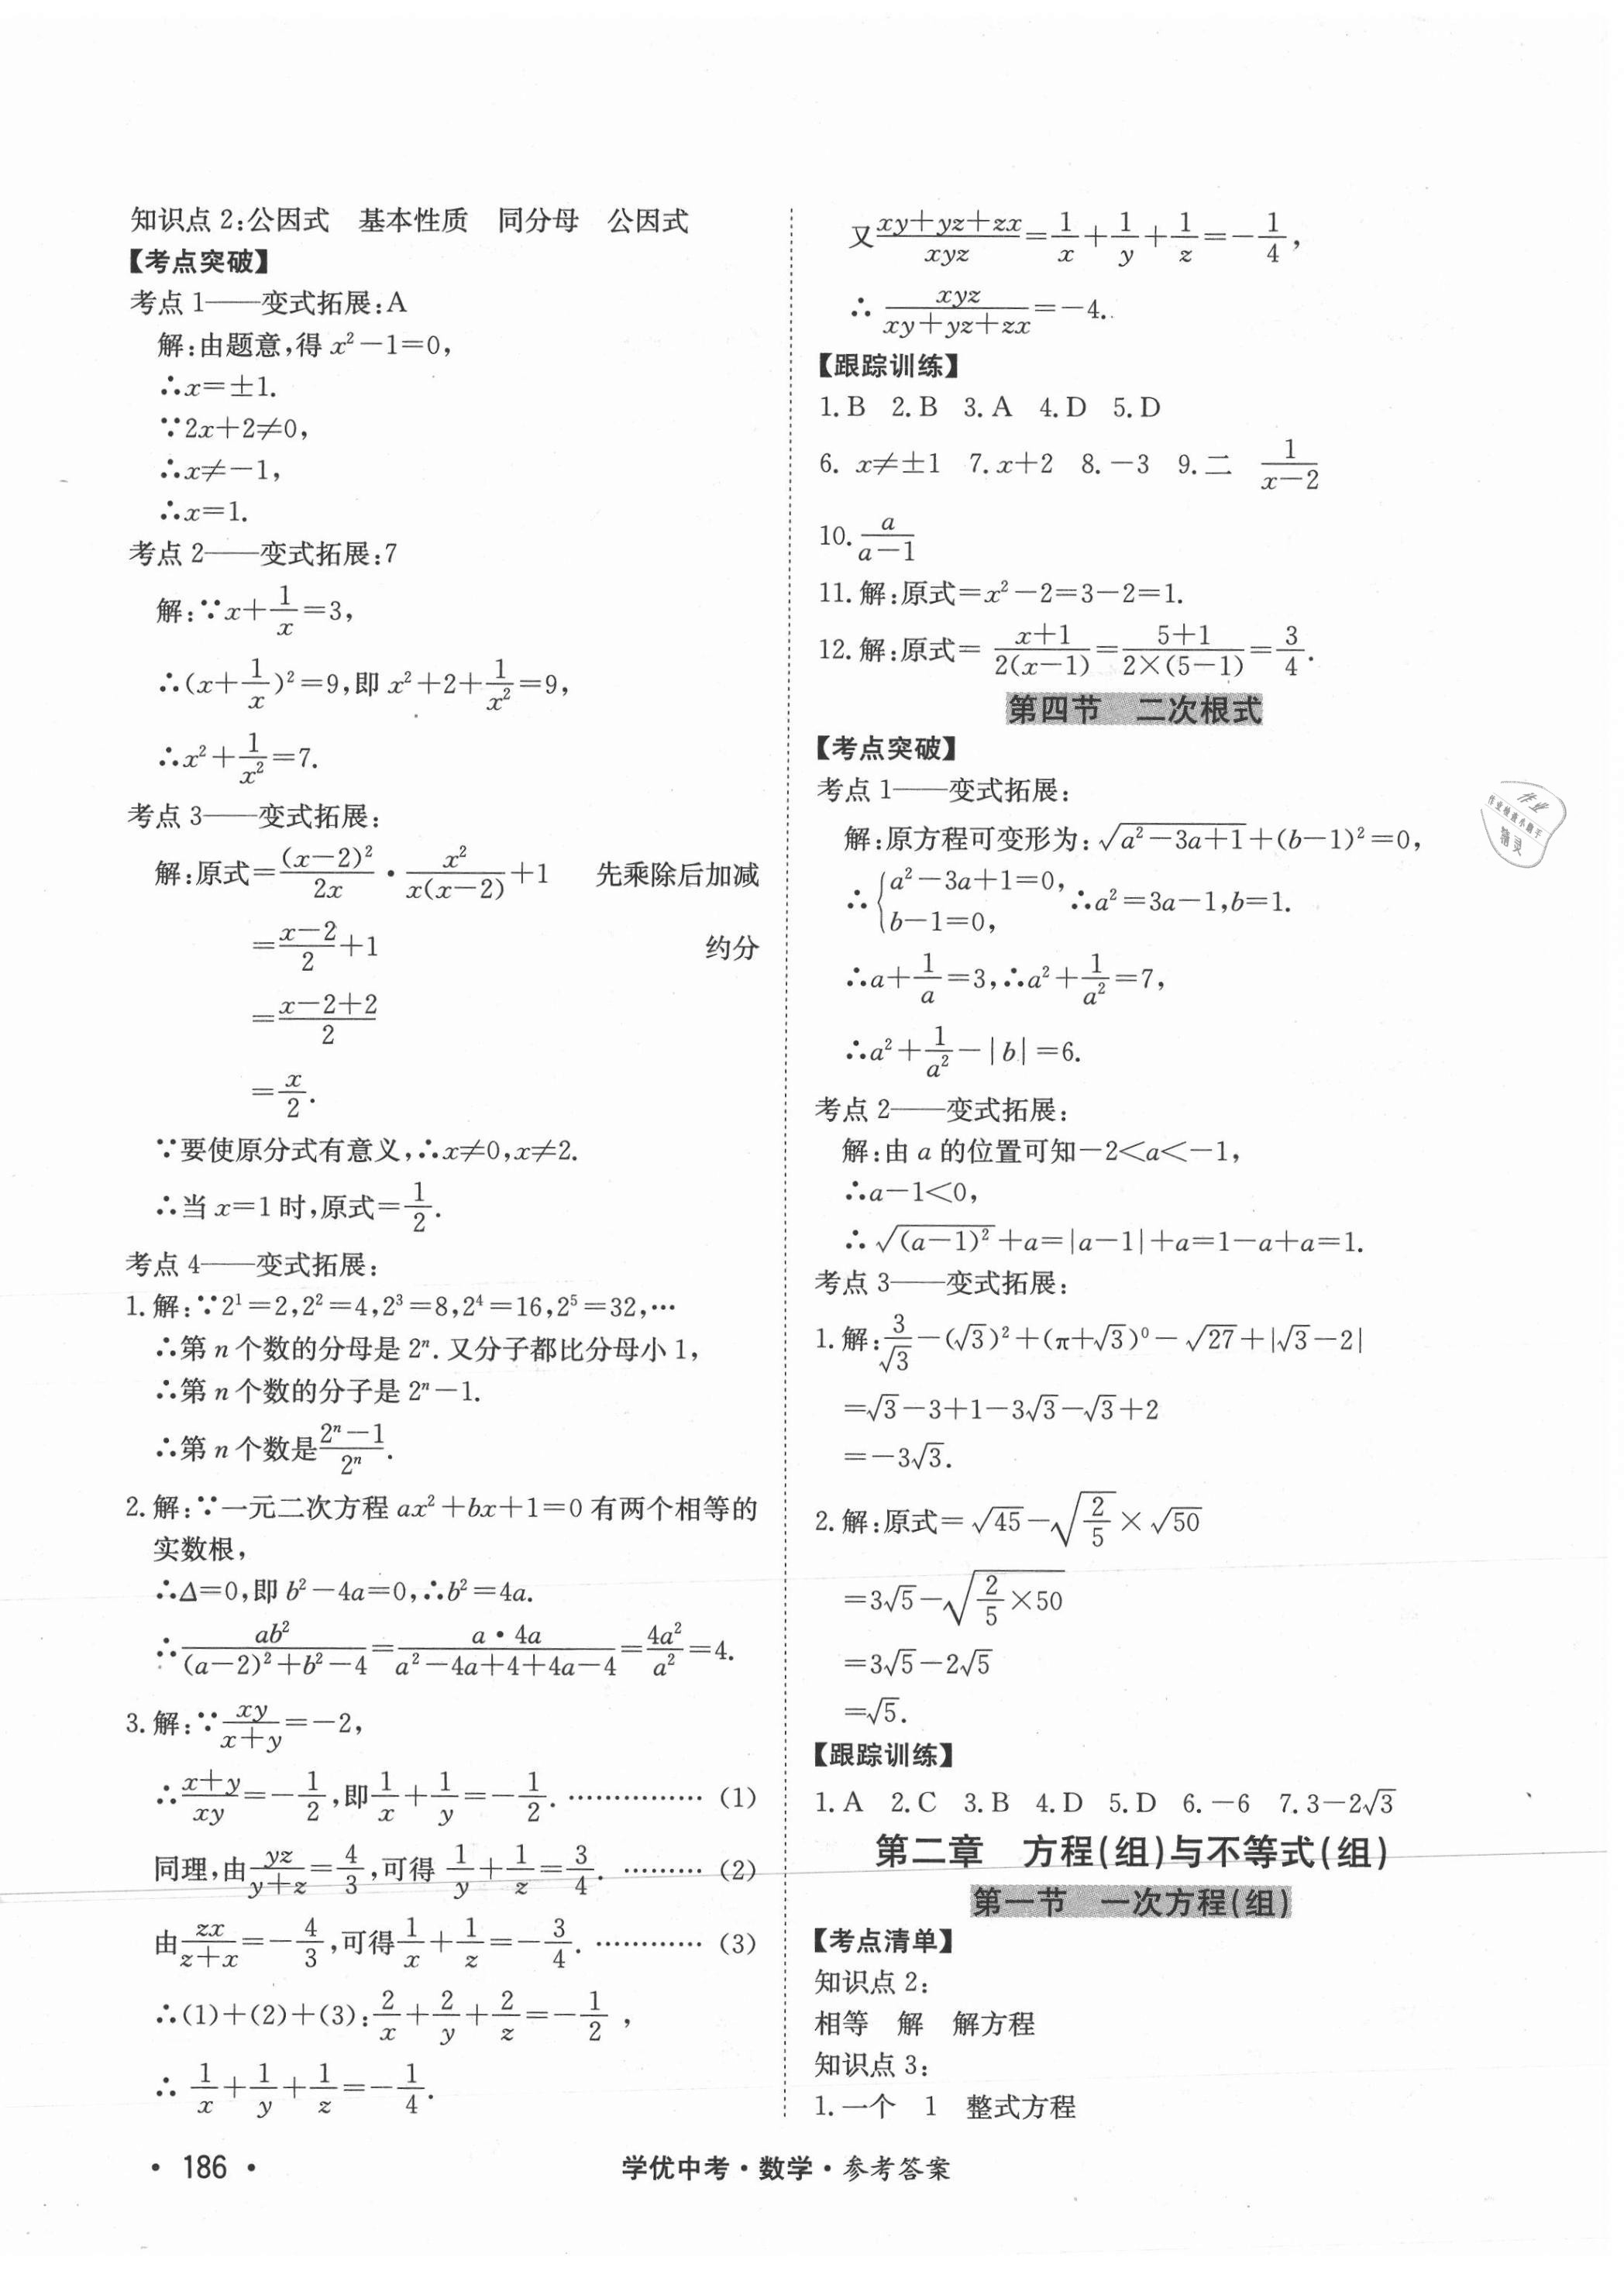 知识点 2:公因式　基本性质　同分母　公因式
【考点突破】
考点 1——变式拓展:A
解:由题意,得 x²－1=0,
∴x=±1.
∵2x+2≠0,
∴x≠－1,
∴x=1.
考点 2——变式拓展:7
解:∵x+\frac{1}{x}=3,
∴(x+\frac{1}{x})²=9,即 x²+2+\frac{1}{x²}=9,
∴x²+\frac{1}{x²}=7.
考点 3——变式拓展:
解:原式=\frac{(x－2)²}{2x}·\frac{x²}{x(x－2)}+1　先乘除后加减
=\frac{x－2}{2}+1　约分
=\frac{x－2+2}{2}
=\frac{x}{2}.
∵要使原分式有意义,∴x≠0,x≠2.
∴当 x=1 时,原式=\frac{1}{2}.
考点 4——变式拓展:
1. 解:∵2¹=2,2²=4,2³=8,2⁴=16,2⁵=32,…
∴第 n 个数的分母是 2ⁿ. 又分子都比分母小 1,
∴第 n 个数的分子是 2ⁿ－1.
∴第 n 个数是\frac{2ⁿ－1}{2ⁿ}.
2. 解:∵一元二次方程 ax²+bx+1=0 有两个相等的
实数根,
∴Δ=0,即 b²－4a=0,∴b²=4a.
∴\frac{ab²}{(a－2)²+b²－4}=\frac{a·4a}{a²－4a+4+4a－4}=\frac{4a²}{a²}=4.
3. 解:∵\frac{xy}{x+y}=－2,
∴\frac{x+y}{xy}=－\frac{1}{2},即\frac{1}{x}+\frac{1}{y}=－\frac{1}{2}. …………… (1)
同理,由\frac{yz}{y+z}=\frac{4}{3},可得\frac{1}{y}+\frac{1}{z}=\frac{3}{4}. ……… (2)
由\frac{zx}{z+x}=－\frac{4}{3},可得\frac{1}{x}+\frac{1}{z}=－\frac{3}{4}. ………… (3)
∴(1)+(2)+(3):\frac{2}{x}+\frac{2}{y}+\frac{2}{z}=－\frac{1}{2},
∴\frac{1}{x}+\frac{1}{y}+\frac{1}{z}=－\frac{1}{4}.
又\frac{xy+yz+zx}{xyz}=\frac{1}{x}+\frac{1}{y}+\frac{1}{z}=－\frac{1}{4},
∴\frac{xyz}{xy+yz+zx}=－4.
【跟踪训练】
1. B　2. B　3. A　4. D　5. D
6. x≠±1　7. x+2　8. －3　9. 二　\frac{1}{x－2}
10. \frac{a}{a－1}
11. 解:原式=x²－2=3－2=1.
12. 解:原式=\frac{x+1}{2(x－1)}=\frac{5+1}{2×(5－1)}=\frac{3}{4}.
第四节　二次根式
【考点突破】
考点 1——变式拓展:
解:原方程可变形为:√(a²－3a+1)+(b－1)²=0,
∴{a²－3a+1=0, b－1=0, ∴a²=3a－1,b=1.
∴a+\frac{1}{a}=3,∴a²+\frac{1}{a²}=7,
∴a²+\frac{1}{a²}－|b|=6.
考点 2——变式拓展:
解:由 a 的位置可知－2<a<－1,
∴a－1<0,
∴√((a－1)²)+a=|a－1|+a=1－a+a=1.
考点 3——变式拓展:
1. 解:\frac{3}{√3}－(√3)²+(π+√3)⁰－√27+|√3－2|
=√3－3+1－3√3－√3+2
=－3√3.
2. 解:原式=√45－√(\frac{2}{5})×√50
=3√5－√(\frac{2}{5}×50)
=3√5－2√5
=√5.
【跟踪训练】
1. A　2. C　3. B　4. D　5. D　6. －6　7. 3－2√3
第二章　方程(组)与不等式(组)
第一节　一次方程(组)
【考点清单】
知识点 2:
相等　解　解方程
知识点 3:
1. 一个　1　整式方程
· 186 ·
学优中考·数学·参考答案
作业
精灵